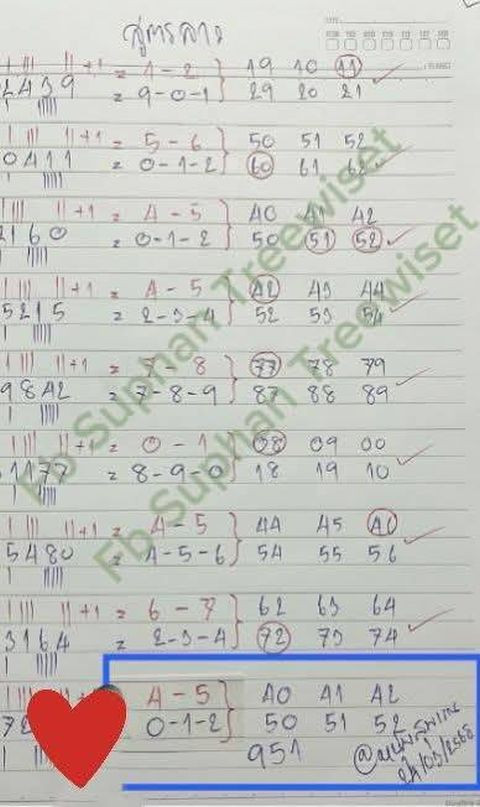 สูตรลาว
+1 = 1 - 2 } 19 10 11
2439 = 9-0-1 29 20 21
+1 = 5 - 6 } 50 51 52
0411 = 0-1-2 60 61 62
+1 = 4 - 5 } 40 41 42
2160 = 0-1-2 50 51 52
+1 = 4 - 5 } 42 43 44
5215 = 2-3-4 52 53 54
+1 = 7 - 8 } 77 78 79
9842 = 7-8-9 87 88 89
+1 = 0 - 1 } 08 09 00
1177 = 8-9-0 18 19 10
+1 = 4 - 5 } 44 45 46
5480 = 4-5-6 54 55 56
+1 = 6 - 7 } 62 63 64
3164 = 2-3-4 72 73 74
4 - 5 } 40 41 42
0-1-2 50 51 52
951
24/03/2568
Fb Suphan Treewiset
Fb Suphan Treewiset